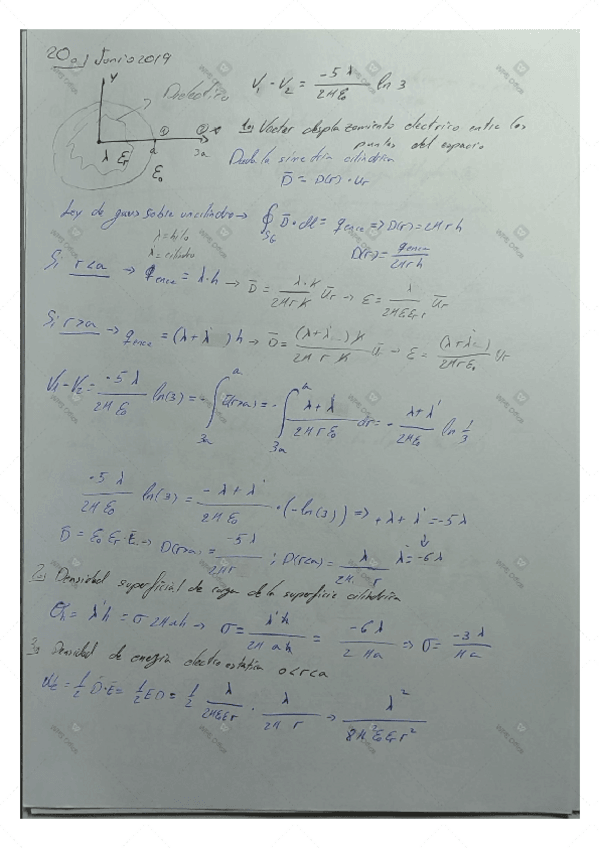 20 a) Junio 2019
Y
Dielectrico
V₁ - V₂ = -5λ / 2πε₀ ln 3
λ εr a ① ② x
3a
ε₀
1o) Vector desplazamiento electrico entre los
puntos del espacio
Dada la simetria cilindrica
D̄ = D(r) · ur
Ley de gauss sobre un cilindro → ∮SG D̄ · ds = qenc => D(r) = 2π r h
λ = hilo
λ' = cilindro
D(r) = qenc / 2π r h
Si r<a → qenc = λ · h → D̄ = λ · h / 2π r h ūr → E = λ / 2π ε₀ εr r ūr
Si r>a → qenc = (λ + λ') h → D̄ = (λ + λ') h / 2π r h ū → E = (λ + λ') / 2π r ε₀ ur
V₁ - V₂ = -5λ / 2π ε₀ ln(3) = - ∫3a^a E(r>a) = - ∫3a^a λ + λ' / 2π r ε₀ dr = - λ + λ' / 2π ε₀ ln 1/3
-5λ / 2π ε₀ ln(3) = -λ + λ' / 2π ε₀ · (-ln(3)) => +λ + λ' = -5λ
D̄ = ε₀ εr · E → D(r>a) = -5λ / 2π r ; D(r<a) = λ / 2π r λ' = -6λ
2o) Densidad superficial de carga de la superficie cilindrica
Qh = λ' h = σ 2π a h → σ = λ' h / 2π a h = -6λ / 2πa => σ = -3λ / πa
3o Densidad de energia electrostatica o<r<a
We = 1/2 D̄ · Ē = 1/2 E D = 1/2 λ / 2π ε εr r · λ / 2π r → λ² / 8π² ε₀ εr r²